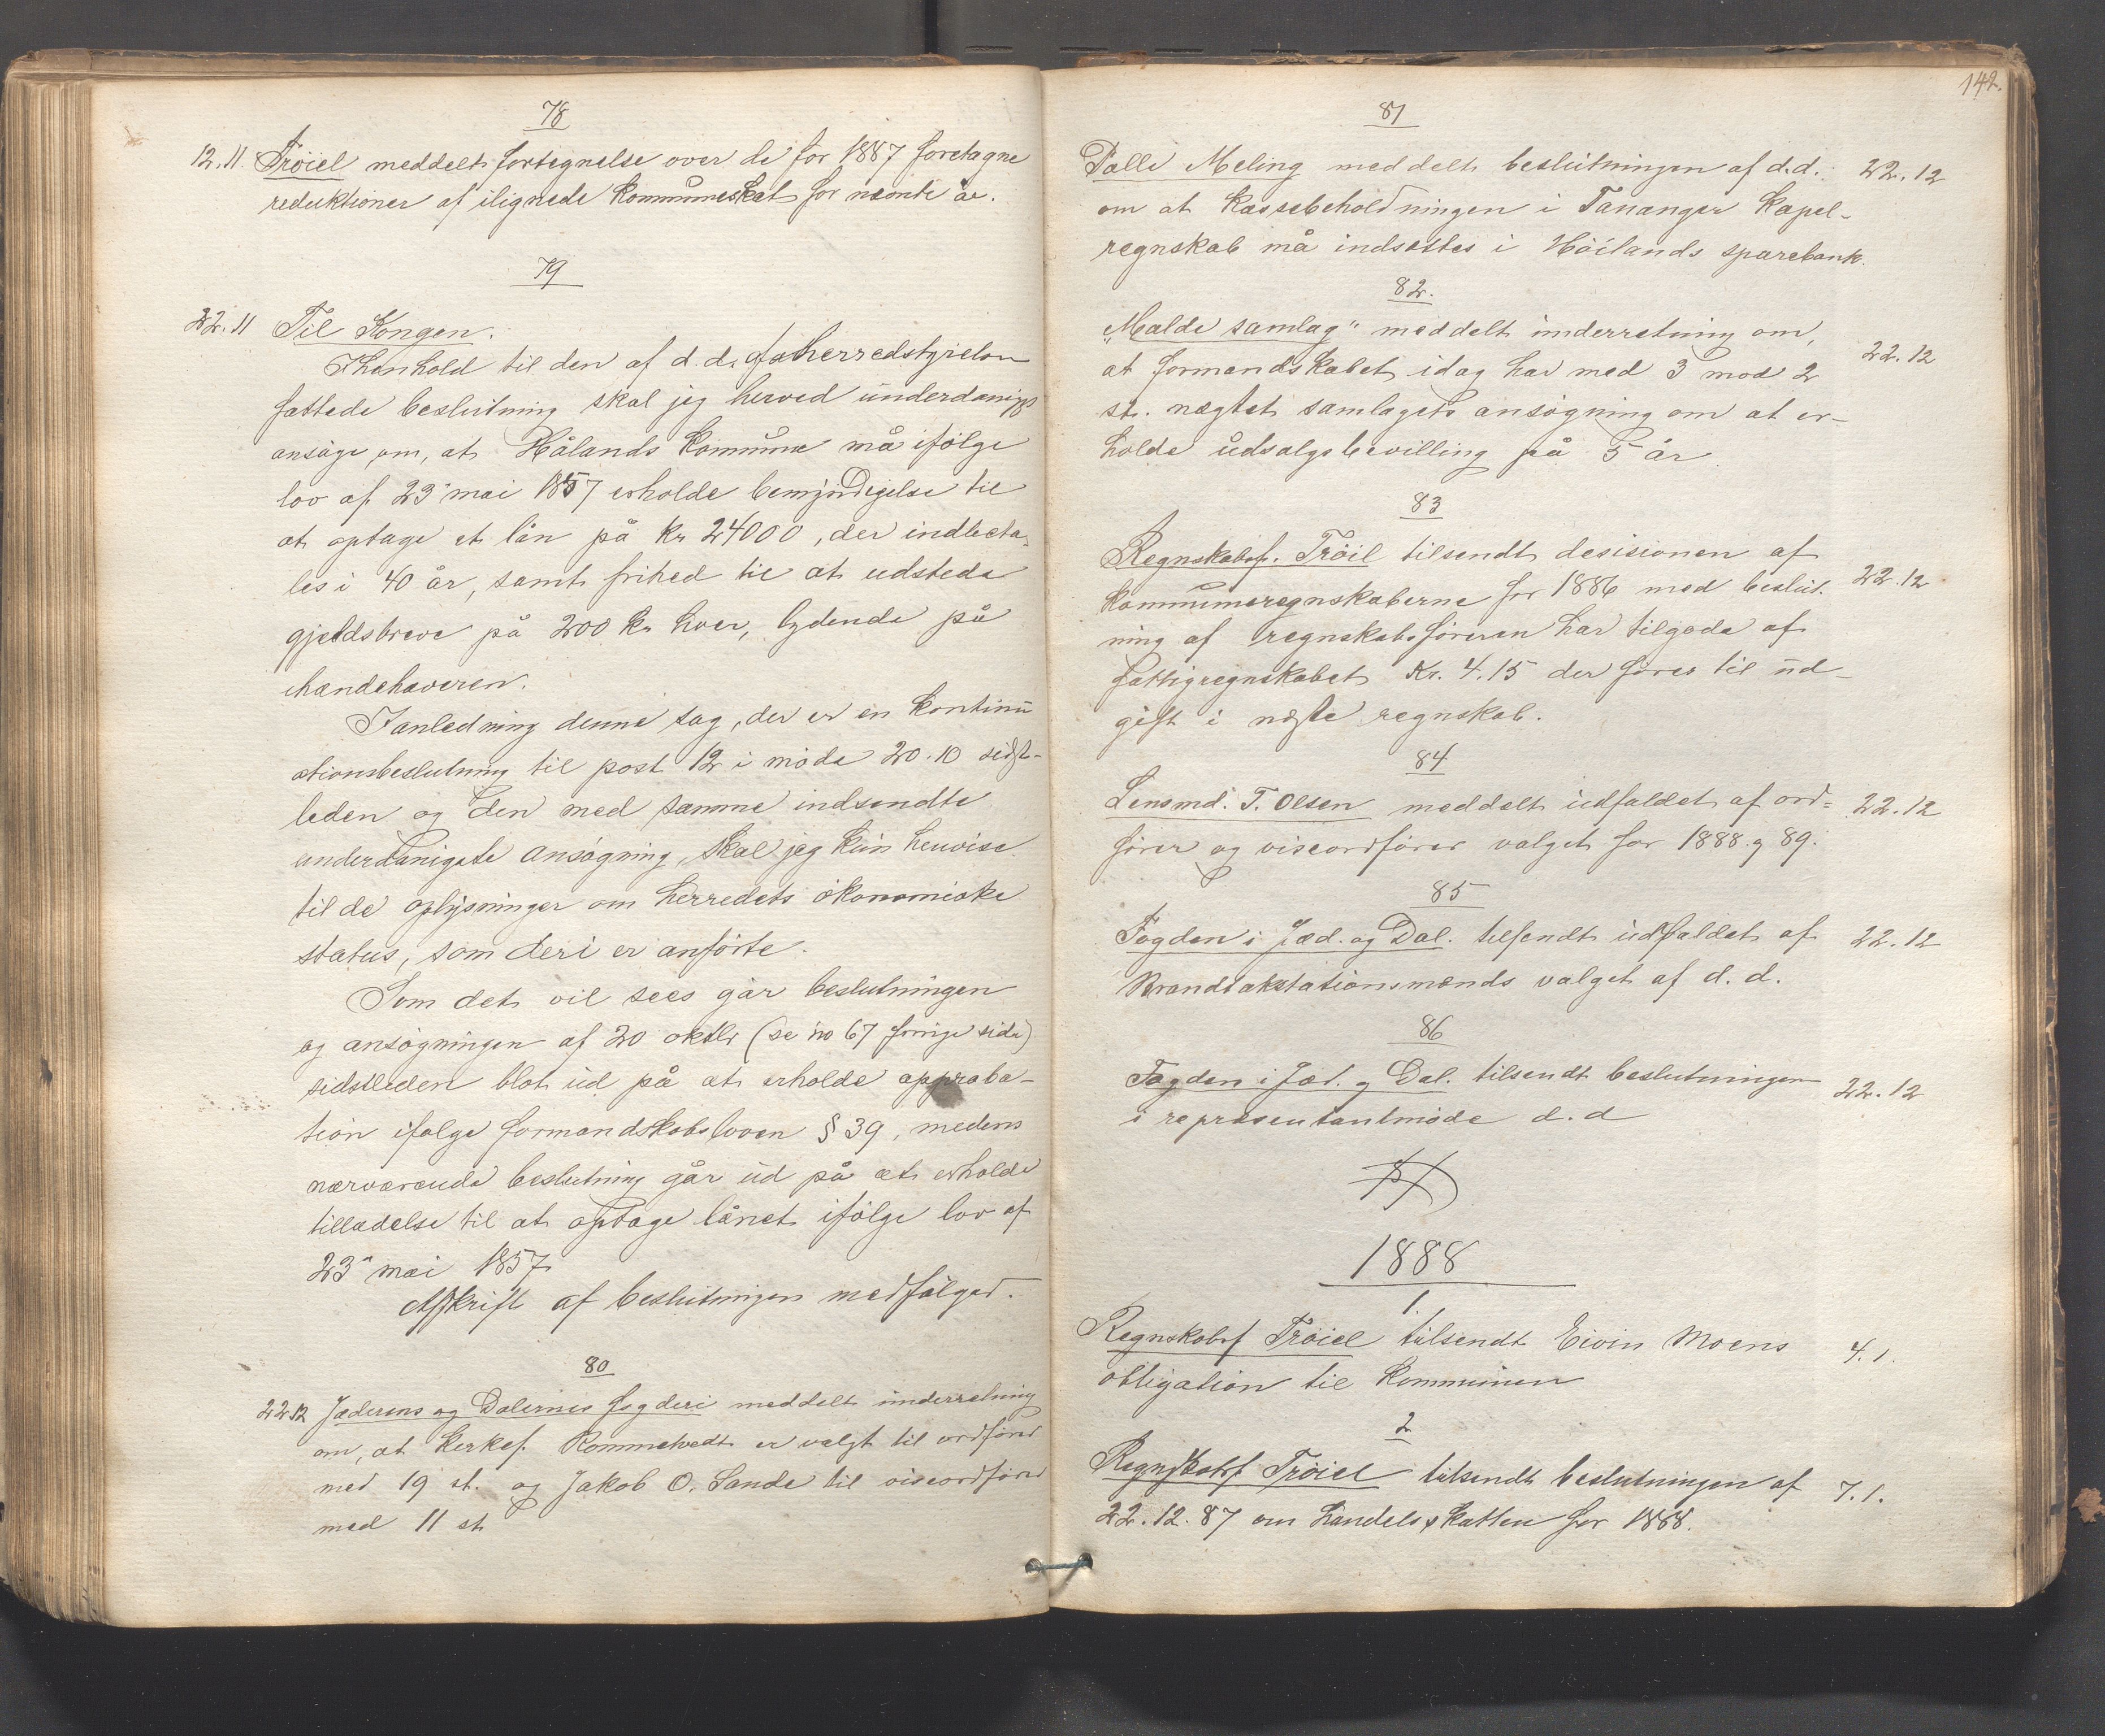 78
12.11. Tröiel meddelt fortegnelse over de for 1887 foretagne
reduktioner af ilignede kommuneskat for nævnte år.
79
22.11 Til Kongen.
Ihenhold til den af d.d. af herredstyrelsen
fattede beslutning skal jeg herved underdanigst
ansøge om, at Hålands kommune må ifölge
lov af 23 mai 1857 erholde bemyndigelse til
at optage et lån på kr 24000, der indbeta-
les i 40 år, samt frihed til at udstede
gjeldsbreve på 200 kr hver, lydende på
ihændehaveren.
I anledning denne sag, der er en kontinu
ationsbeslutning til post 12 i möde 20.10 sidst-
leden og den med samme indsendte
underdanigste ansögning, skal jeg kun henvise
til de oplysninger om herredets ökonomiske
status, som deri er anförte.
Som det vil sees går beslutningen
og ansögningen af 20 oktbr (se no 67 forrige side)
sidstleden blot ud på at erholde approba-
tion ifølge formandskabsloven § 39, medens
nærværende beslutning går ud på at erholde
tilladelse til at optage lånet ifölge lov af
23 mai 1857.
Afskrift af beslutningen medfölger.
80
22.12 Jæderens og Dalernes fogderi meddelt underretning
om, at kirkes. Rommetvedt er valgt til ordförer
med 19 st. og Jakob O. Sande til viseordförer
med 11 st.
142.
81
Palle Meling meddelt beslutningen af d.d. 22.12
om at kassebeholdningen i Tananger kapel-
regnskab må indsættes i Höilands sparebank.
82.
„Malde samlag" meddelt underretning om,
at formandskabet idag har med 3 mod 2 22.12
st. nægtet samlagets ansögning om at er-
holde udsalgsbevilling på 5 år.
83
Regnskabsf. Tröil tilsendt desisionen af
kommuneregnskaberne for 1886 med beslut- 22.12
ning af regnskabsföreren har tilgode af
fattigregnskabet Kr. 4.15 der föres til ud-
gift i næste regnskab.
84
Lensmd. T. Olsen meddelt udfaldet af ord- 22.12
förer og viseordförer valget for 1888 og 89.
85
Fogden i Jæd. og Dal. tilsendt udfaldet af 22.12
Brandtakstationsmænds valget af d.d.
86
Fogden i Jæd. og Dal. tilsendt beslutningen 22.12
i representantmöde d.d
1888
1.
Regnskabsf Tröiel tilsendt Eivin Moens 4.1.
obligation til kommunen
2
Regnskabsf Tröiel tilsendt beslutningen af 7.1.
22.12.87 om handelsskatten for 1888.